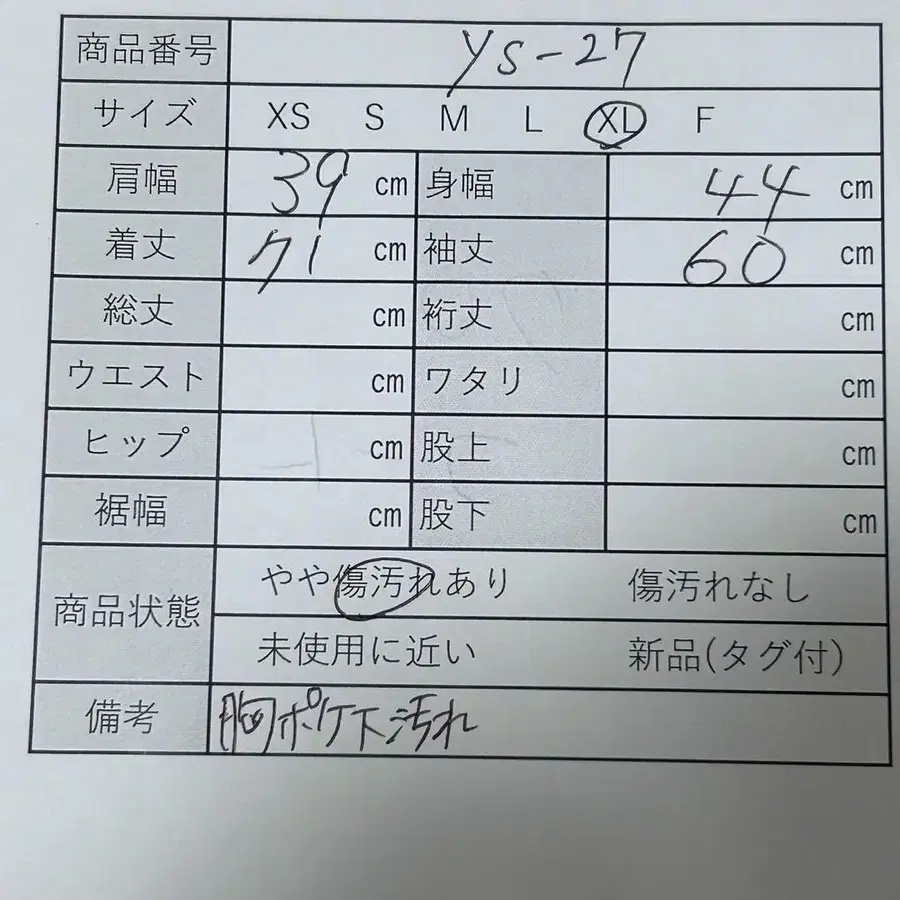 商品番号 YS-27
サイズ XS S M L XL F
肩幅 39 cm 身幅 44 cm
着丈 71 cm 袖丈 60 cm
総丈 cm 裄丈 cm
ウエスト cm ワタリ cm
ヒップ cm 股上 cm
裾幅 cm 股下 cm
商品状態 やや傷汚れあり 傷汚れなし
未使用に近い 新品(タグ付)
備考 胸ポケ下汚れ